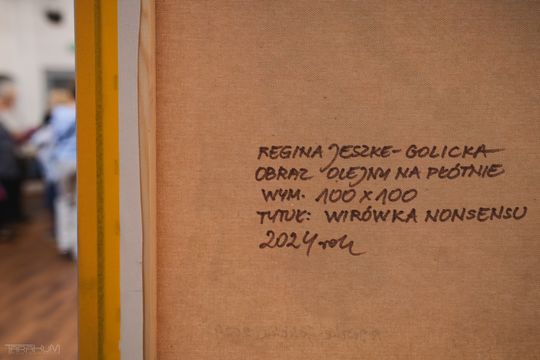 REGINA JESZKE-GOLICKA
OBRAZ OLEJNY NA PŁÓTNIE
WYM. 100 X 100
TYTUŁ: WIRÓWKA NONSENSU
2024 rok
TARAKUM